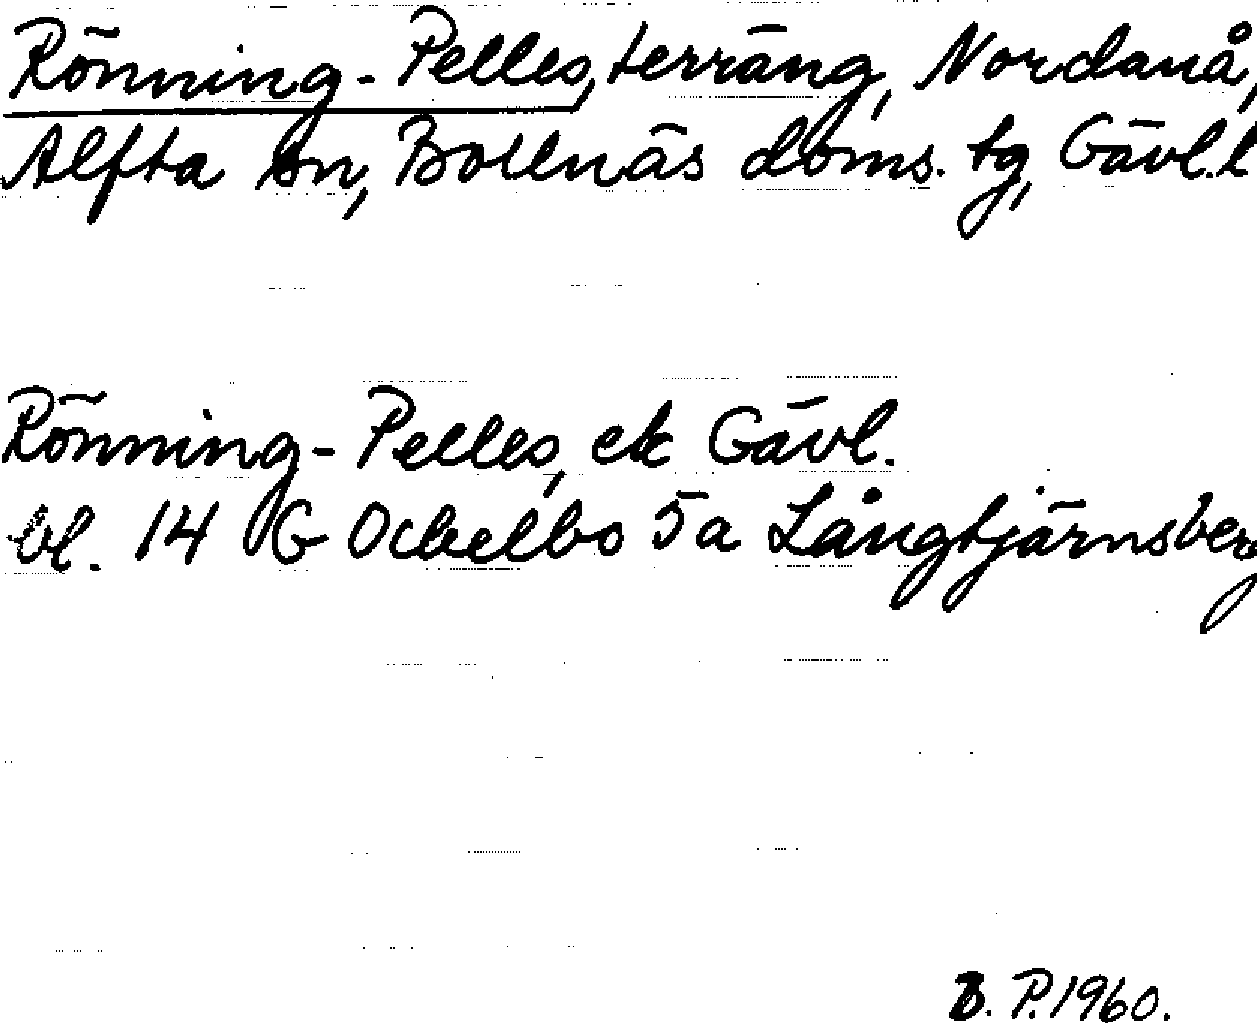 Rönning-Pelles, terräng, Nordanå,
Alfta sn, Bollnäs doms. tg, Gävl. l
Rönning-Pelles, ek Gävl.
bl. 14 G Ockelbo 5a Långtjärnsberg
B. P. 1960.